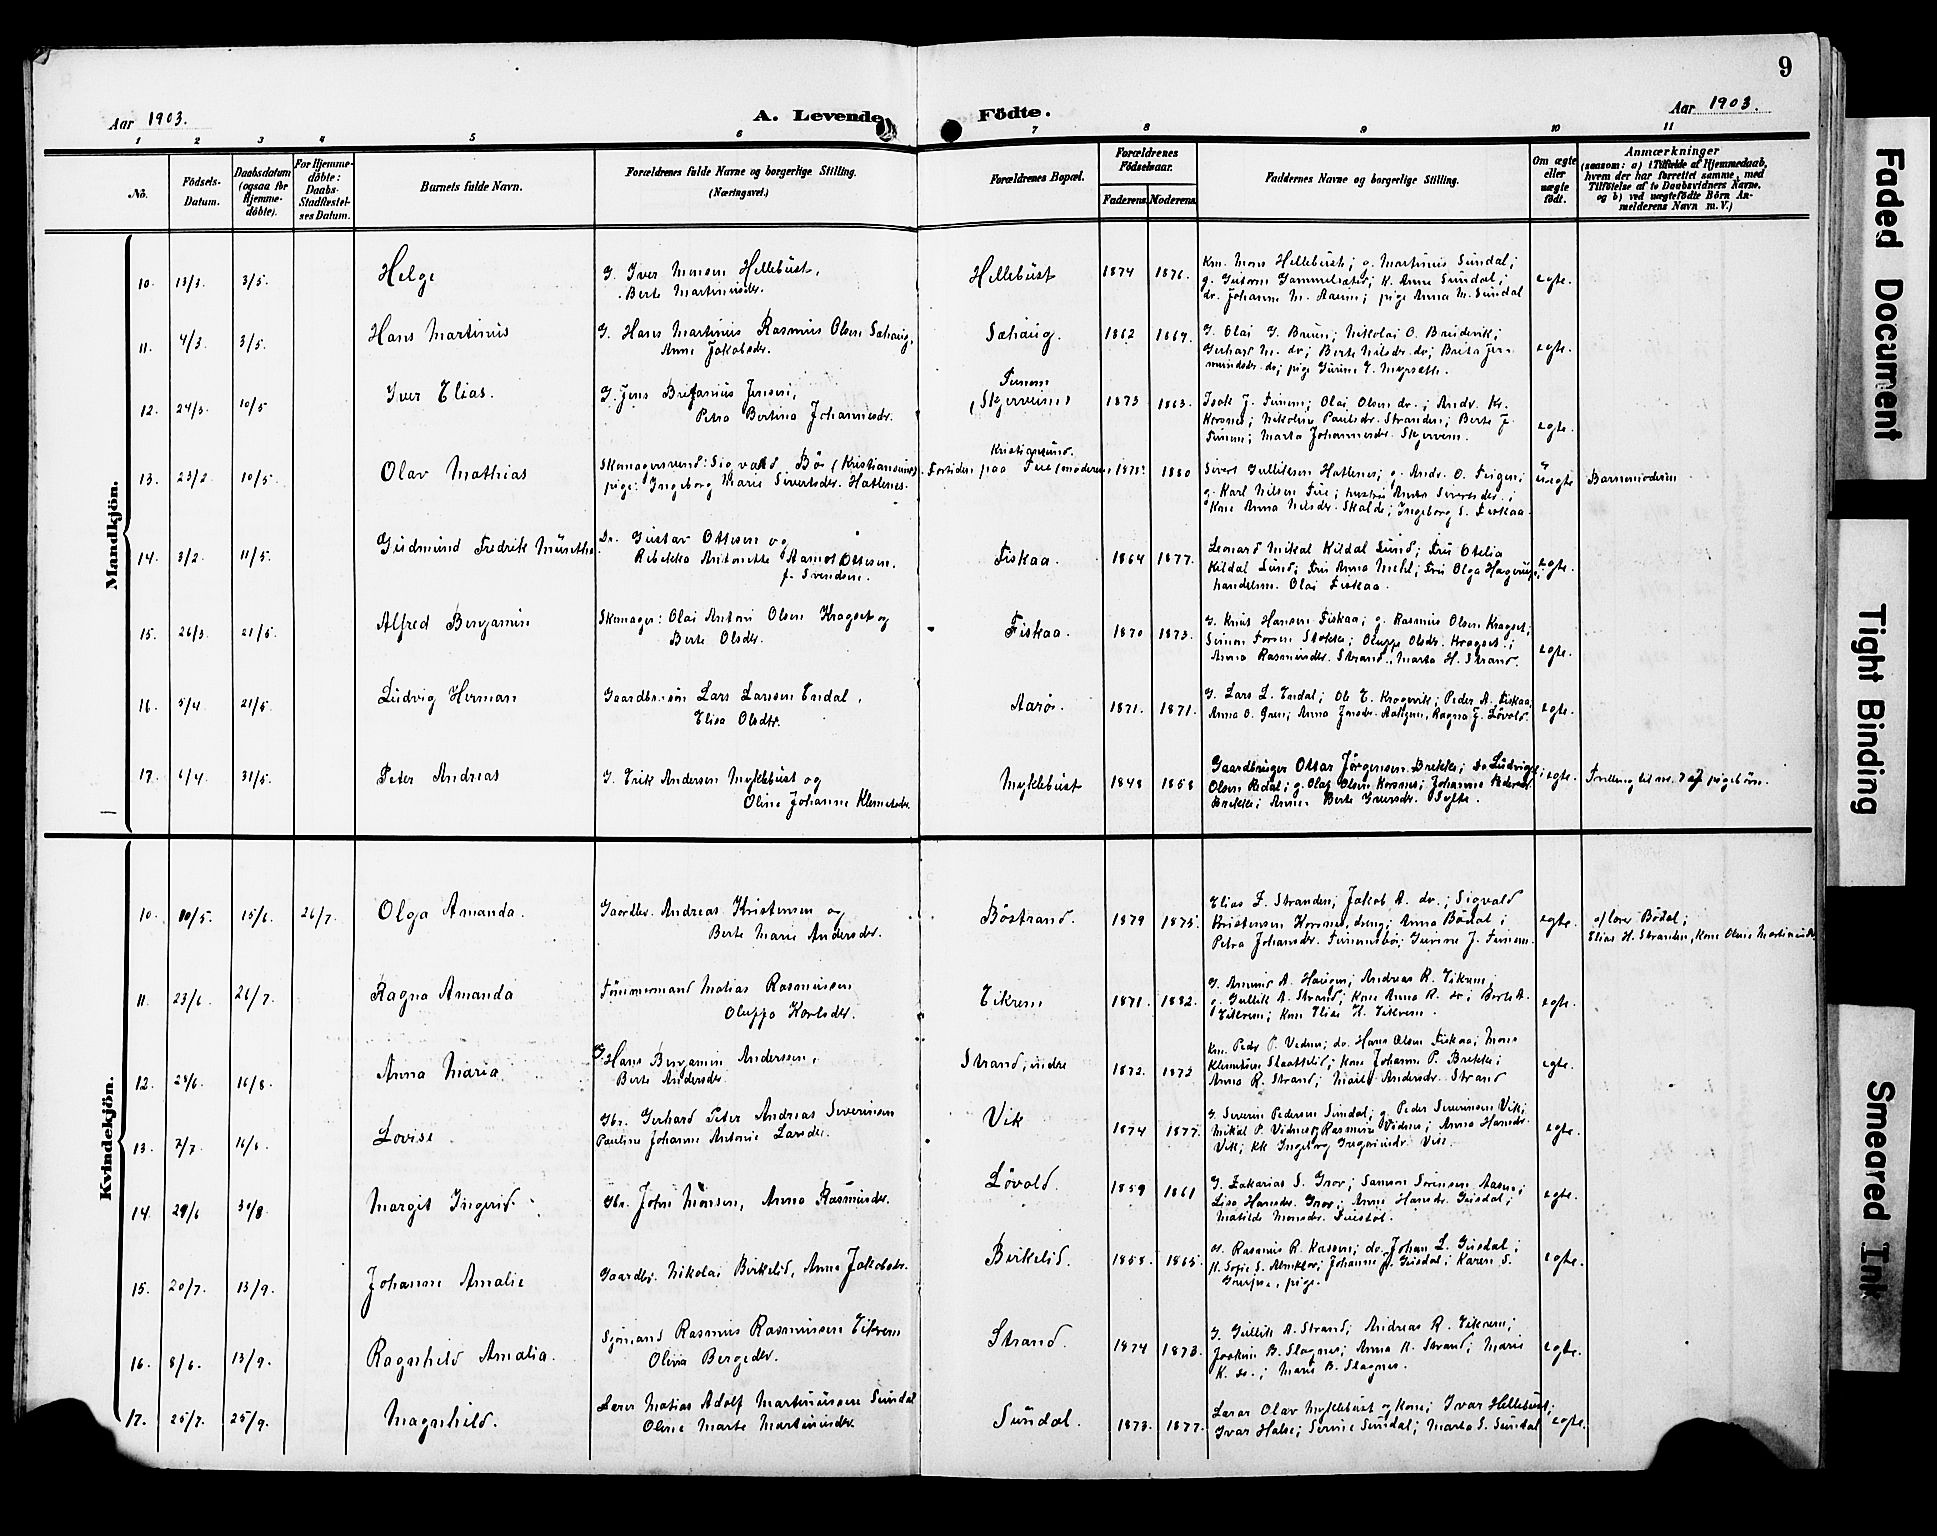 9
Aar 1903.
A. Levende
Födte.
Aar 1903.
1 2 3 4 5 6 7 8 9 10 11
No.
Födsels-
Datum.
Daabsdatum
(ogsaa for
Hjemme-
döbte).
For Hjemme-
döbte:
Daabs-
Stadfæstel-
ses Datum.
Barnets fulde Navn.
Forældrenes fulde Navne og borgerlige Stilling.
(Næringsvei.)
Forældrenes Bopæl.
Forældrenes
Födselsaar.
Faderens
Moderens.
Faddernes Navne og borgerlige Stilling.
Om ægte
eller
uægte
födt.
Anmærkninger
(saasom: a) i Tilfælde af Hjemmedaab,
hvem der har forrettet samme, med
Tilföielse af to Daabsvidners Navne.
og b) ved uægtefödte Börn An-
melderens Navn m. V.)
Mandkjön.
10. 13/3. 3/5. Helge
G. Iver Monsen Hellebust,
Berte Martinusdr.
Hellebust 1874 1876.
Km. Mons Hellebust; g. Martinus Sundal;
g. Guttorm Gammelsæter; K. Anne Sundal;
dr. Johanne M. Aaum; pige Anna M. Sundal
egte.
11. 4/3. 3/5. Hans Martinus
G. Hans Martinus Rasmus Olsen Sahaug,
Anne Jakobsdr.
Sahaug. 1862 1864.
G. Olai G. Bruun; Nikolai O. Breidevik;
Gerhard M. do; Berte Nilsdr. do; Brita
do; pige Gurine
egte.
12. 24/3. 10/5 Iver Elias.
G. Jens Brefanius Jensen,
Petra Bertina Johannesdr.
Furnem
(Skjerveim) 1873 1863.
Isak J. Furnem; Olai Olsen do.; Andr. Kr.
Korsnes; Nikoline Paulsdr. Stranden; Berte J.
Furnem; Marta Johannesdr. Skjervem.
egte.
13. 23/2. 10/5. Olav Mathias
Skomagersvend: Sigvald Bös (Kristiansund).
pige: Ingeborg Marie Sivertsdr. Hatlenes.
Kristiansund.
Fortiden paa Eire (moderen) 1878? 1880
Sivert Gulliksen Hatlenes; g. Andr. O. Feigen;
g. Karl Nilsen Eire; hustru Anna Sivertsdr.;
Kone Anna Nilsdr. Skalde; Ingeborg S. Fiskaa.
uegte Barnemoderen
14. 3/2. 11/5. Gudmund Fredrik Münsthe
Dr. Gustav Ottesen og
Rebekka Antonette Aamot Ottesen.
f. Svendsen.
Fiskaa. 1864 1877.
Leonard Mikal Kildal Lund; Fru Otelia
Kildal Lund; Fru Anna Mehl; Fru Olga Hagerup;
handelsm. Olai Fiskaa.
egte.
15. 26/3. 21/5. Alfred Benjamin
Skomager: Olai Anton Olsen Kragset og
Berte Olsdr.
Fiskaa. 1870 1873.
G. Knut Hansen Fiskaa; g. Rasmus Olsen Kragset;
Simon Stokke; Oluffa Olsdr. Kragset;
Anna Rasmusdr. Strand, Marta H. Strand.
egte.
16. 5/4. 21/5. Ludvig Herman
Gaardbr.sön Lars Larsen Endal,
Elisa Olsdtr.
Aarö. 1871. 1871.
G. Lars L. Endal; Ole E. Kragevik; Peder A. Fiskaa;
Anna O. Grøn; Anna Jensdr. Ragna J. Lövold.
egte.
17. 6/4. 31/5. Peter Andreas
G. Erik Andersen Myklebust og
Oline Johanne Klemetsdr.
Myklebust 1848 1858
Gaardbruger Ottar Jörgensen Brekke; do Ludvig
Olsen Rødal; g. Olaf Olsen Korsnes; Johanne Pedersdr.
Brekke; Anne Berte Iversdr. Sylte.
egte. Tvilling til nr. 7 af pigebörn.
Kvindekjön.
10. 10/5. 15/6. 26/7. Olga Amanda.
Gaardbr. Andreas Kristensen og
Berte Marie Andersdr.
Böstrand. 1879 1875.
Elias Z. Stranden; Jakob A. do.; Sigvald
Kristensen Korsnes, dreng; Anna Bödal;
Petra Johansdr. Furnemsbö; Gurine J. Furnem.
egte. af lærer Bödal;
Elias H. Stranden, Kone Oline Martinusdr.
11. 23/6. 26/7. Ragna Amanda
Tömmermand Matias Rasmussen
Oluffa Karlsdr.
Eikrem 1871. 1882.
G. Amund A. Haugen; Andreas R. Eikrem;
g. Gullik A. Strand; Kone Anna R. do; Berte A.
Eikrem; Kone Elise H. Eikrem.
egte.
12. 28/6. 16/8. Anna Maria
G. Hans Benjamin Anderssen,
Berte Andersdr.
Strand, indre 1872. 1872
Km. Pedr P. Vednes; do. Hans Olsen Fiskaa; Mons
Klemetsen Skaathelid; Kone Johanne P. Brekke;
Anna R. Strand; Marte Andersdr. Strand
egte.
13. 2/7. 16/8. Lovise
Gbr. Gerhard Peter Andreas Severinsen
Pauline Johanne Antonie Larsdr.
Vik 1874 1877.
G. Severin Pedersen Sundal; g. Peder Severinsen Vik;
Mikal P. Vidnes; Rasmine Vidnes; Anna Hansdr.
Vik; kk Ingeborg Gregoriusdr. Vik.
egte.
14. 29/6 30/8. Margit Ingerid.
Gbr. John Monsen, Anna Rasmusdr.
Lövold. 1859 1861
G. Zakarias S. Gror; Samson Sörensen Aasen;
Lisa Hansdr. Gror; Anne Hansdr. Gusdal;
Matilde Monsdr. Furstöl.
egte.
15. 20/7. 13/9. Johanne Amalie
Gaardbr. Nikolai Birkelid, Anne Jakobsdr.
Birkelid. 1858. 1865.
G. Rasmus R. Kassen; do. Johan L. Gusdal;
K. Sofie S. Almklov; Johanne J. Gusdal; Karen S.
pige.
egte.
16. 8/6. 13/9. Ragnhild Amalia.
Sjömand Rasmus Rasmussen Eikrem
Olivia Bergedtr.
Strand 1874 1873.
G. Gullik A. Strand; Andreas R. Eikrem;
Joakim B. Slagnes; Anna R. Strand; Marie
K. do.; Marie B. Slagnes.
egte.
17. 25/7. 25/9. Magnhild.
Lærer Matias Adolf Martinussen Sundal
Oline Marte Martinusdr.
Sundal. 1873. 1877.
Lærer Olav Myklebust og kone; Ivar Hellebust;
Ivar Halse; Serine Sundal; Marta S. Sundal
egte.
Faded Document
Tight Binding
Smeared Ink